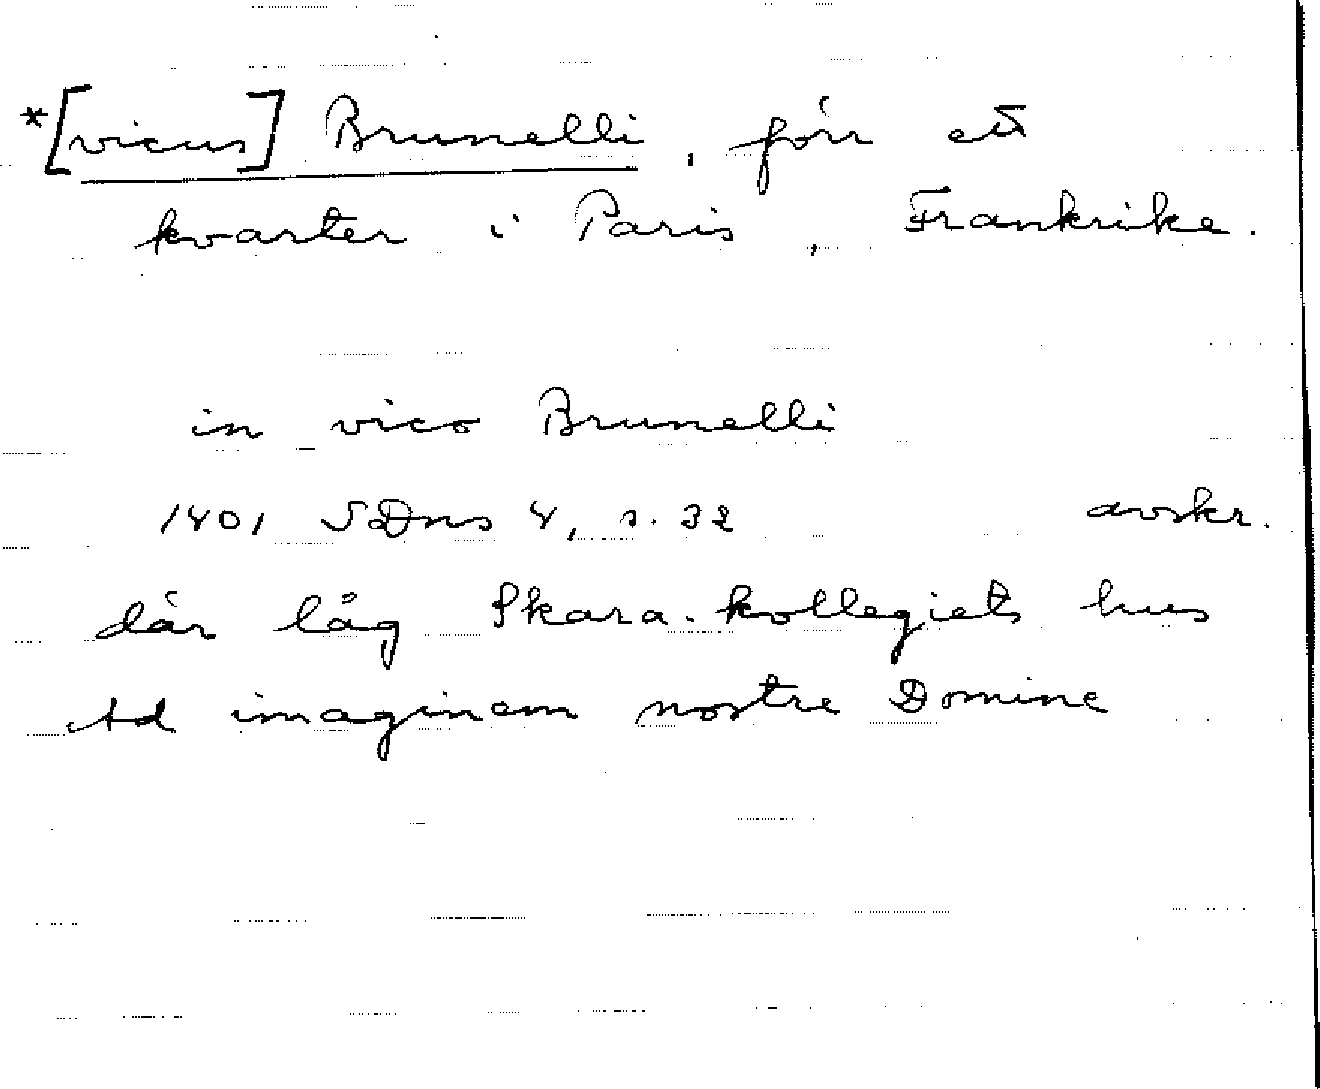 *[vicus] Brunelli, förr ett
kvarter i Paris, Frankrike.
in vico Brunelli
1401 SDns 4, s. 32 avskr.
där låg Skara-kollegiets hus
Ad imaginem nostre Domine